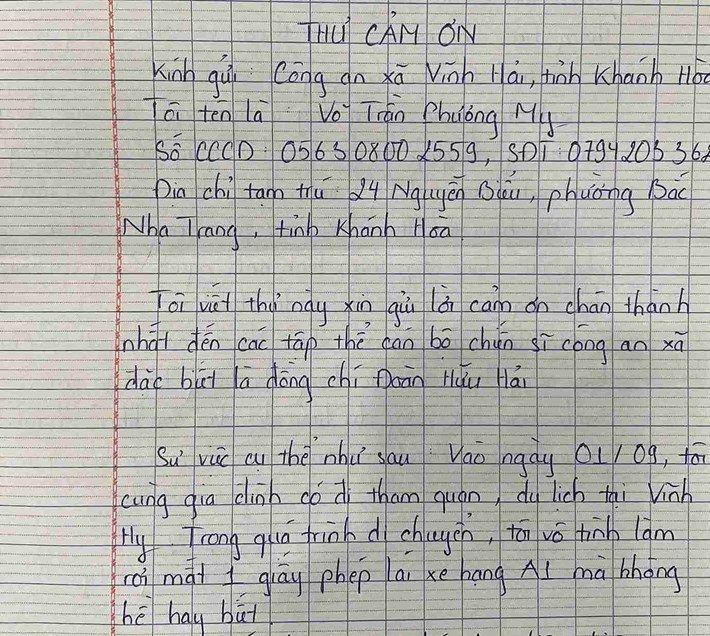 THƯ CẢM ƠN
Kính gửi: Công an xã Vĩnh Hải, tỉnh Khánh Hòa
Tôi tên là: Võ Trần Phương My
Số CCCD: 056308002559, SĐT: 079420536
Địa chỉ tạm trú: 24 Nguyễn Biểu, phường Bắc
Nha Trang, tỉnh Khánh Hòa
Tôi viết thư này xin gửi lời cảm ơn chân thành
nhất đến các tập thể cán bộ chiến sĩ công an xã
đặc biệt là đồng chí Đoàn Hữu Hải
Sự việc cụ thể như sau: Vào ngày 01/09, tôi
cùng gia đình có đi tham quan, du lịch tại Vĩnh
Hy. Trong quá trình di chuyển, tôi vô tình làm
rơi mất 1 giấy phép lái xe hạng A1 mà không
hề hay biết.